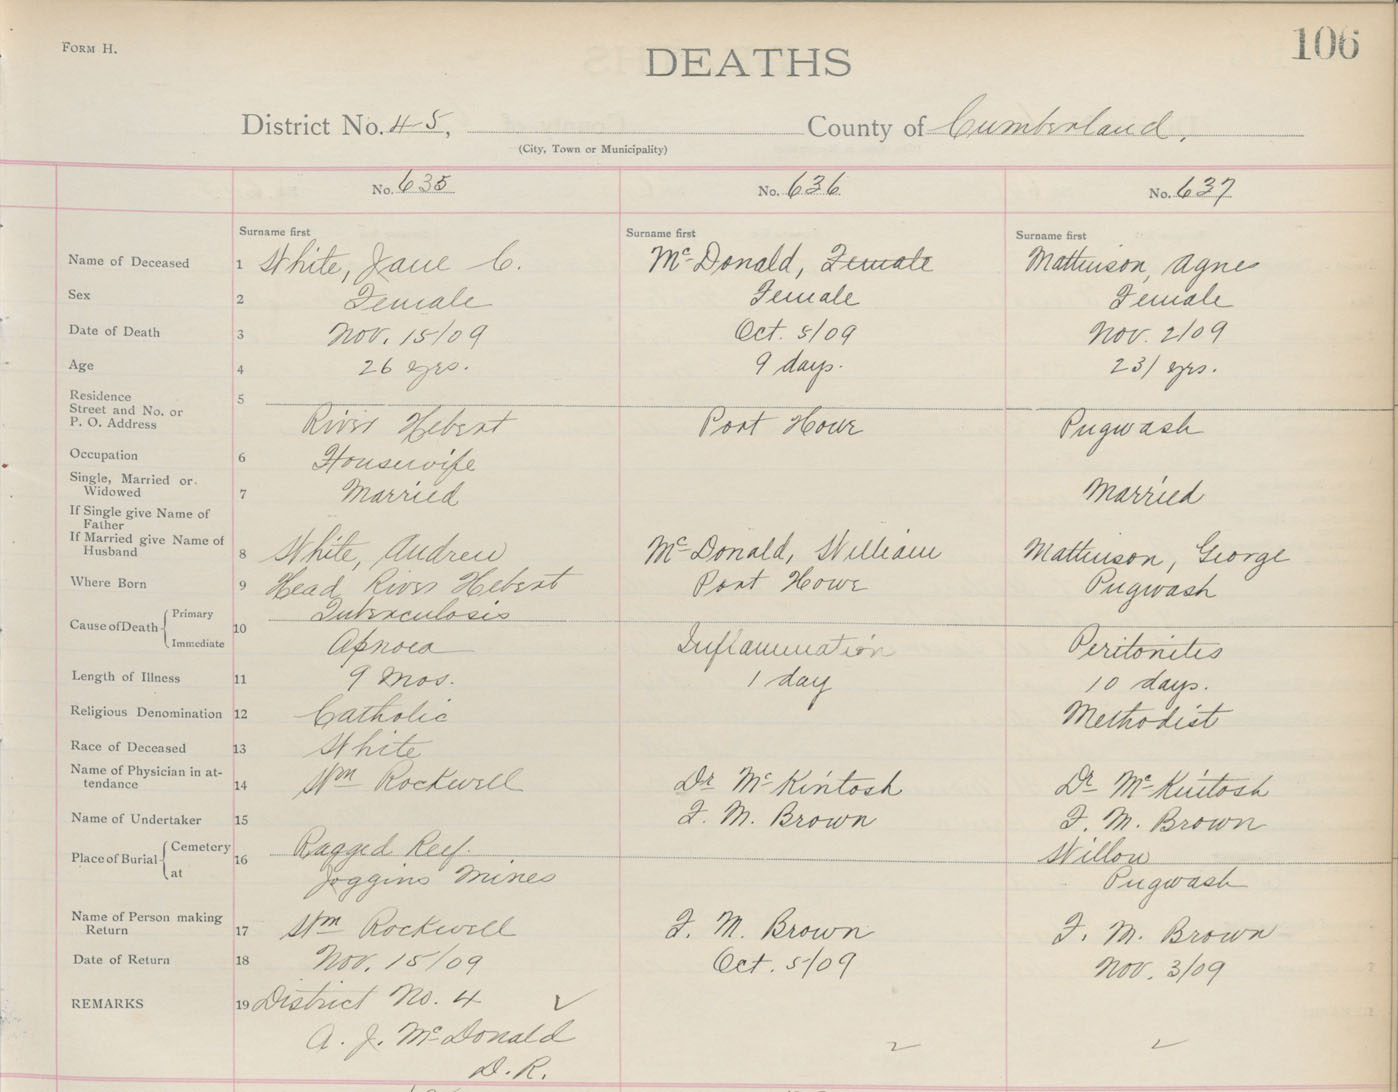 FORM H.
106
DEATHS
District No. 45, County of Cumberland.
(City, Town or Municipality)
No. 635 No. 636 No. 637
Surname first Surname first Surname first
Name of Deceased 1 White, Jane C. McDonald, Female Mathinson, Agnes
Sex 2 Female Female Female
Date of Death 3 Nov. 15/09 Oct. 5/09 Nov. 2/09
Age 4 26 yrs. 9 days. 23/ yrs.
Residence 5
Street and No. or
P. O. Address River Hebert Port Howe Pugwash
Occupation 6 Housewife
Single, Married or
Widowed 7 Married Married
If Single give Name of
Father
If Married give Name of
Husband 8 White, Andrew McDonald, William Mathinson, George
Where Born 9 Head River Hebert Port Howe Pugwash
Cause of Death { Primary 10 Tuberculosis
Immediate Apnoea Inflammation Peritonites
Length of Illness 11 9 Mos. 1 day 10 days.
Religious Denomination 12 Catholic Methodist
Race of Deceased 13 White
Name of Physician in at-
tendance 14 Wm Rockwell Dr McKintosh Dr McKintosh
Name of Undertaker 15 F. M. Brown F. M. Brown
Place of Burial { Cemetery 16 Ragged Reef. Willow
at Joggins Mines Pugwash
Name of Person making
Return 17 Wm Rockwell F. M. Brown F. M. Brown
Date of Return 18 Nov. 15/09 Oct. 5/09 Nov. 3/09
REMARKS 19 District No. 4 ✓
A. J. McDonald
D. R.